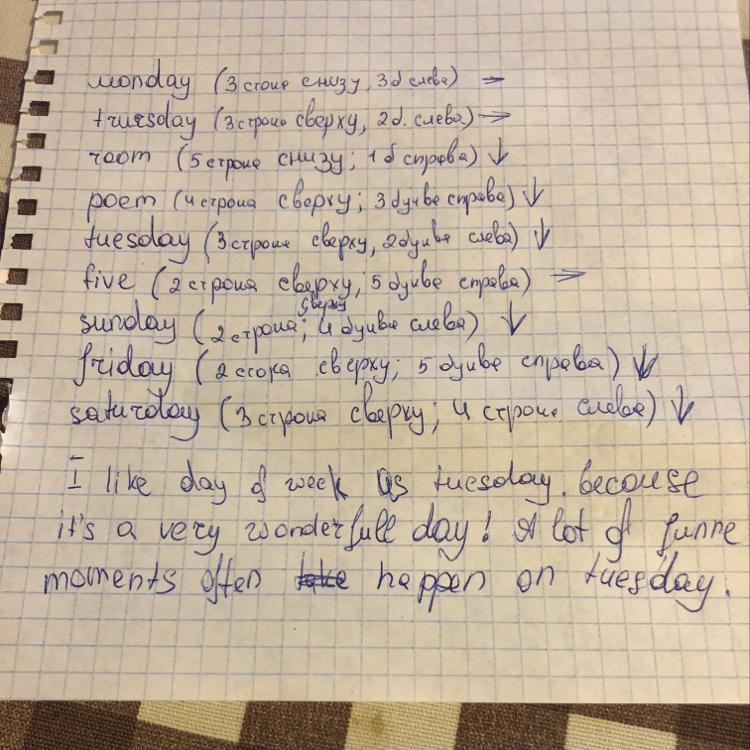 monday (3 стоне снизу, 3б слева) →
truesday (3 строно сверху, 2б. слева) →
room (5 строна снизу; 1б справа) ↓
poem (4 строна сверху; 3 букве справа) ↓
tuesday (3 строне сверху, 2 букве слева) ↓
five (2 строна сверху, 5 букве справа) →
sunday (2 строна; сверху 4 букве слева) ↓
friday (2 стока сверху; 5 букве справа) ↓
saturday (3 строна сверху; 4 строне слева) ↓
I like day of week as tuesday. because
it's a very wonderfull day! A lot of funne
moments often happen on tuesday.